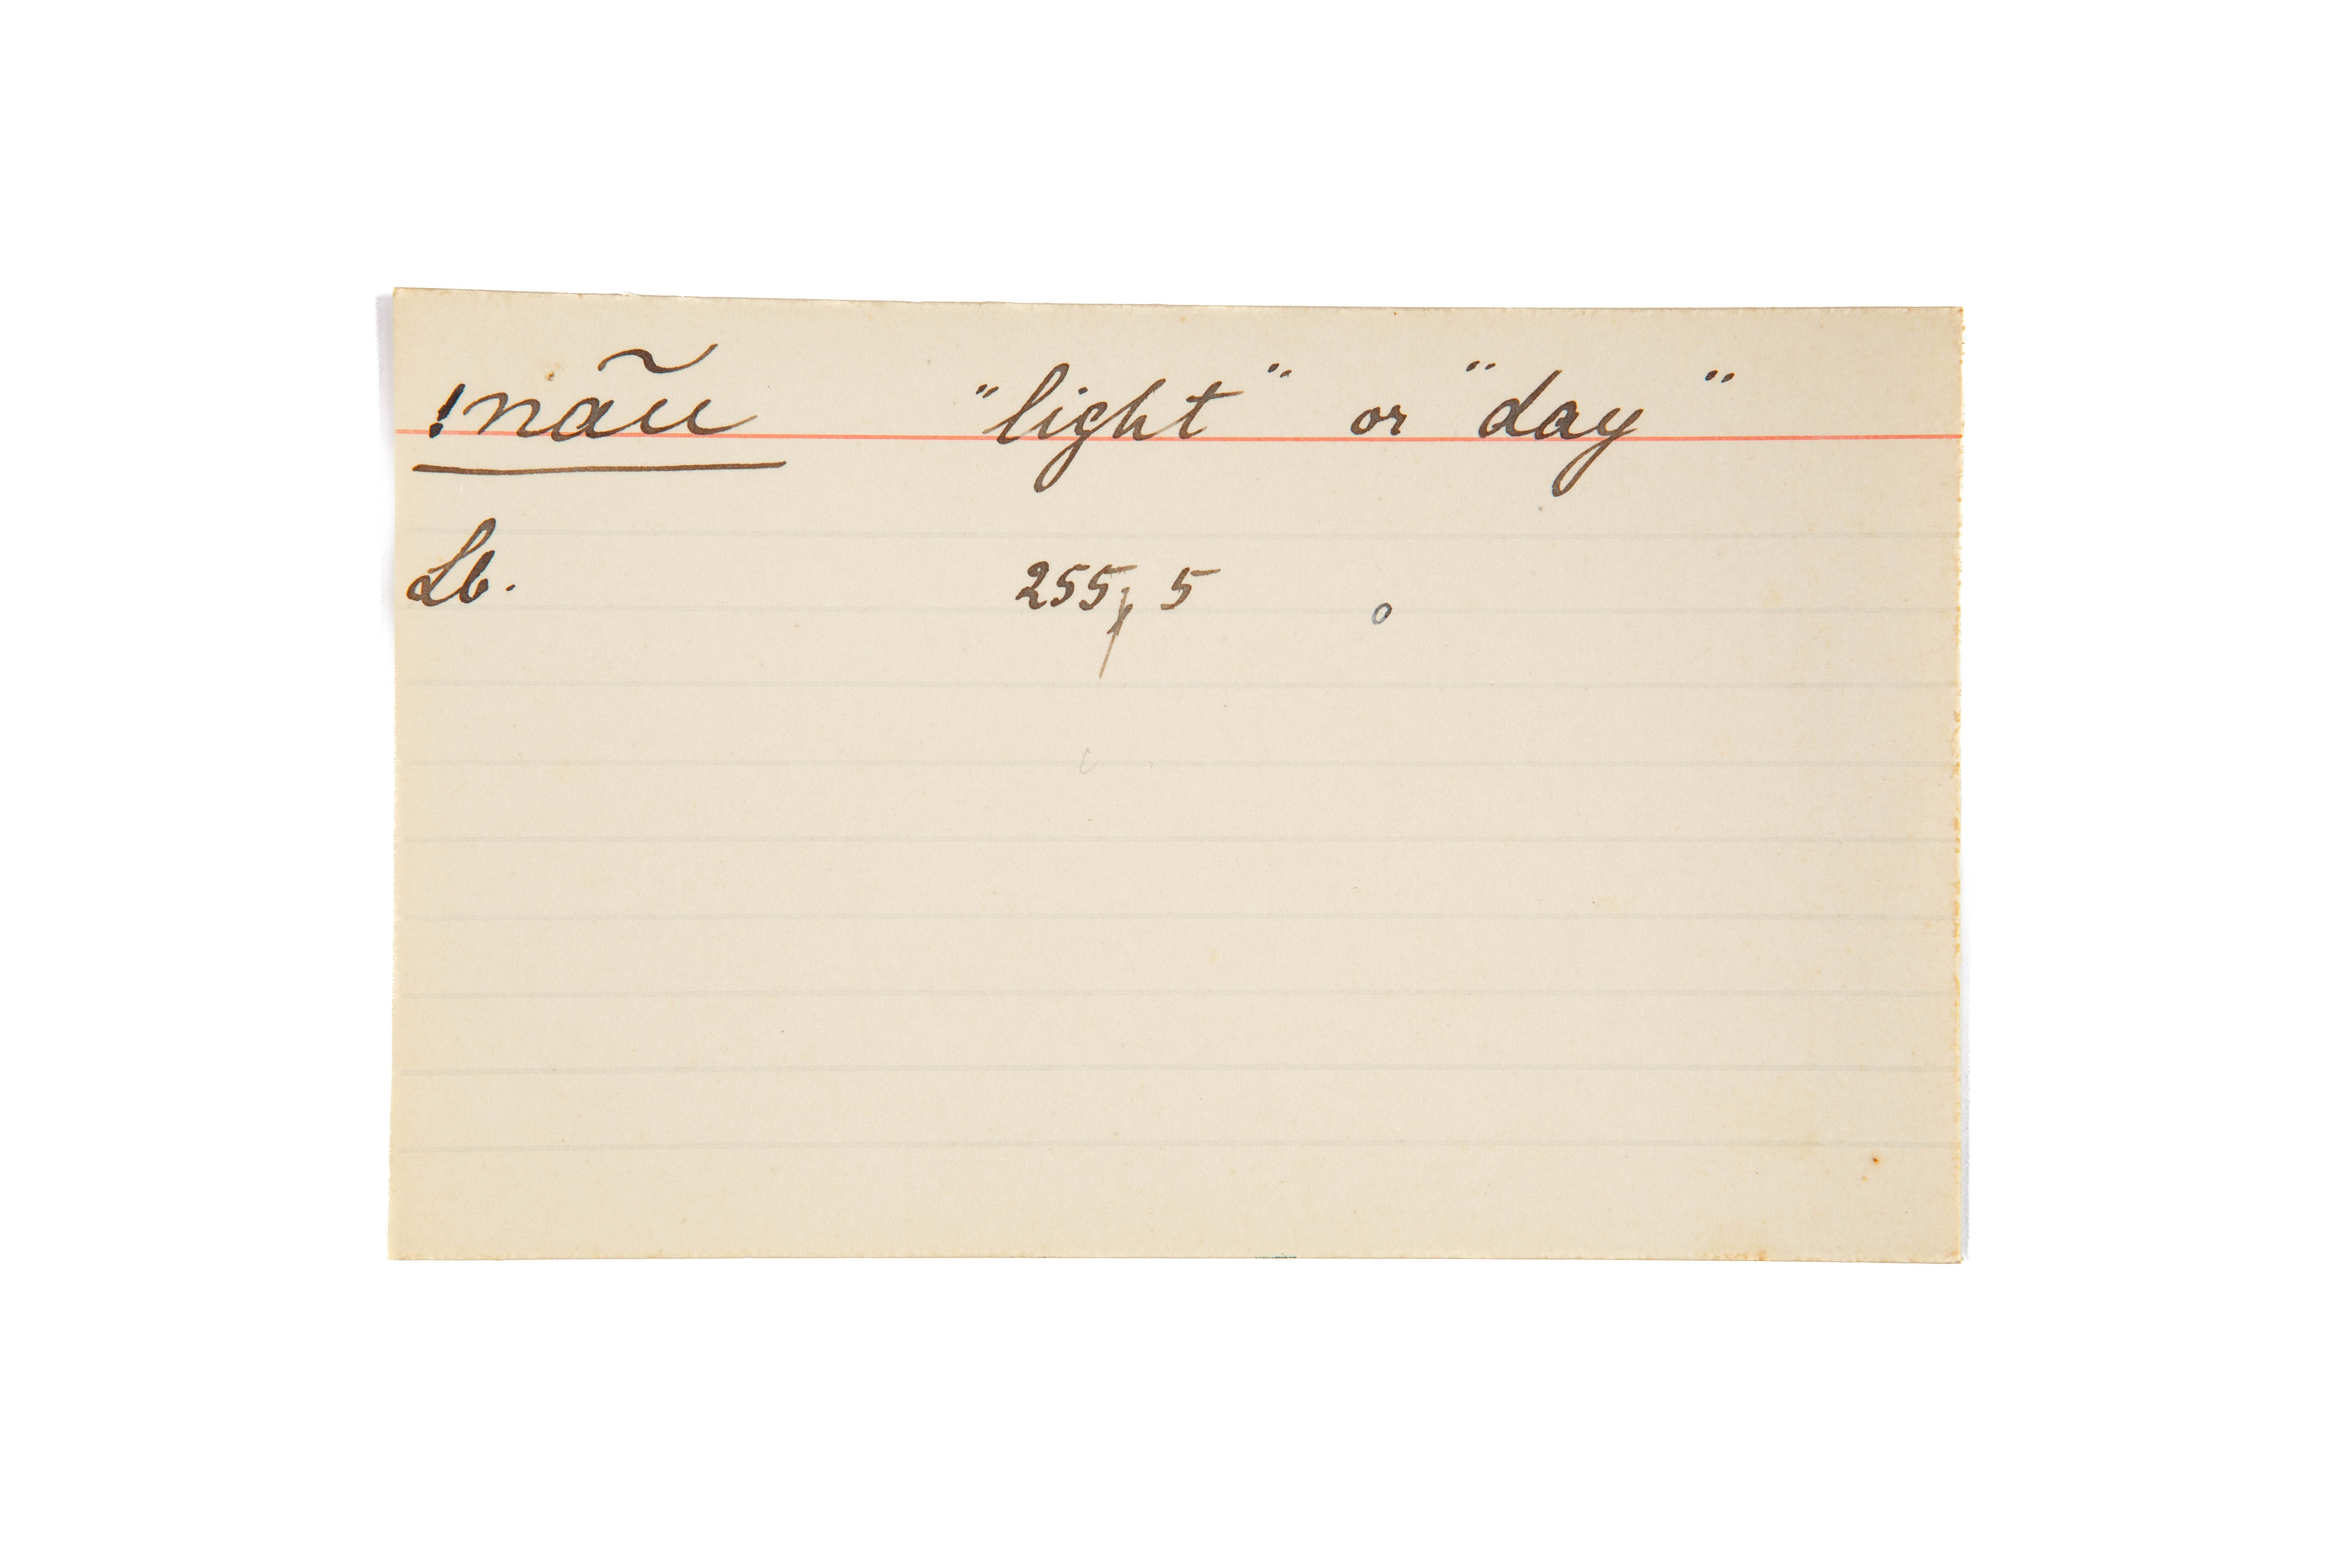 !nãu "light" or "day"
Lb. 255, 5 o